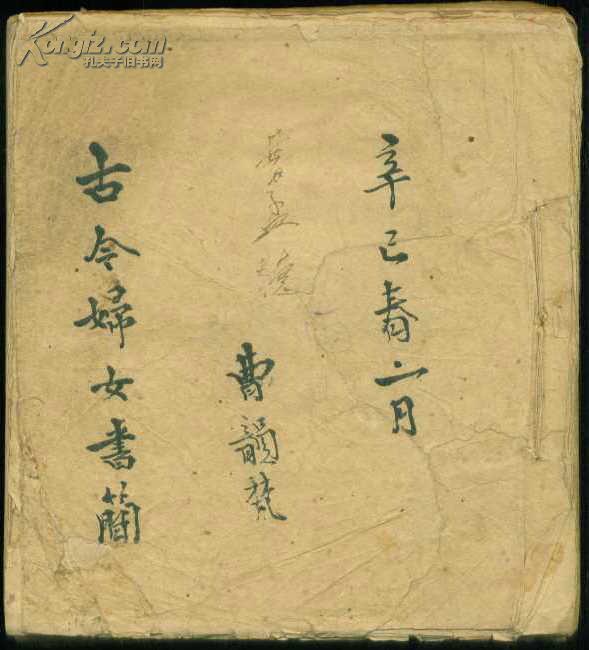 Kongfz.com
孔夫子旧书网
辛巳春二月
曹韻梵
古今婦女書簡